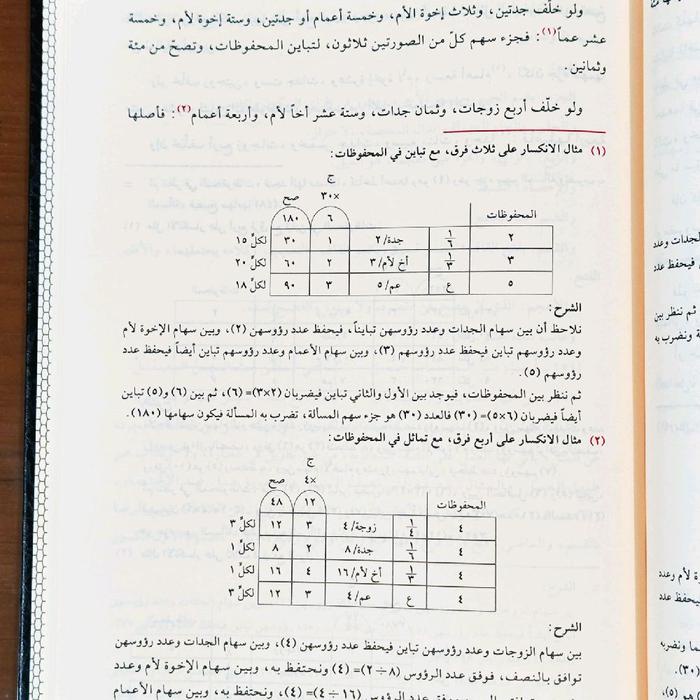 ولو خلّف جدتين، وثلاث إخوة الأم، وخمسة أعمام أو جدتين، وستة إخوة لأم، وخمسة
عشر عماً(١): فجزء سهم كلّ من الصورتين ثلاثون، لتباين المحفوظات، وتصحّ من مئة
وثمانين.
ولو خلّف أربع زوجات، وثمان جدات، وستة عشر أخاً لأم، وأربعة أعمام(٢): فأصلها
(١) مثال الانكسار على ثلاث فرق، مع تباين في المحفوظات:
ج
صح ×٣٠
المحفوظات ٦ ١٨٠
٢ ١/٦ جدة/٢ ١ ٣٠ لكلٍّ ١٥
٣ ١/٣ أخ لأم/٣ ٢ ٦٠ لكلٍّ ٢٠
٥ ع عم/٥ ٣ ٩٠ لكلٍّ ١٨
الشرح:
نلاحظ أن بين سهام الجدات وعدد رؤوسهن تبايناً، فيحفظ عدد رؤوسهن (٢)، وبين سهام الإخوة لأم
وعدد رؤوسهم تباين فيحفظ عدد رؤوسهم (٣)، وبين سهام الأعمام وعدد رؤوسهم تباين أيضاً فيحفظ عدد
رؤوسهم (٥).
ثم ننظر بين المحفوظات، فيوجد بين الأول والثاني تباين فيضربان (٢×٣)= (٦)، ثم بين (٦) و(٥) تباين
أيضاً فيضربان (٦×٥)= (٣٠) فالعدد (٣٠) هو جزء سهم المسألة، تضرب به المسألة فيكون سهامها (١٨٠).
(٢) مثال الانكسار على أربع فرق، مع تماثل في المحفوظات:
ج
صح ×٤
المحفوظات ١٢ ٤٨
٤ ١/٤ زوجة/٤ ٣ ١٢ لكلٍّ ٣
٤ ١/٦ جدة/٨ ٢ ٨ لكلٍّ ١
٤ ١/٣ أخ لأم/١٦ ٤ ١٦ لكلٍّ ١
٤ ع عم/٤ ٣ ١٢ لكلٍّ ٣
الشرح:
بين سهام الزوجات وعدد رؤوسهن تباين فيحفظ عدد رؤوسهن (٤)، وبين سهام الجدات وعدد رؤوسهن
توافق بالنصف، فوفق عدد الرؤوس (٨÷٢)= (٤) ونحتفظ به، وبين سهام الإخوة لأم وعدد
(١٦÷٤)= (٤)، ونحتفظ به، وبين سهام الأعمام